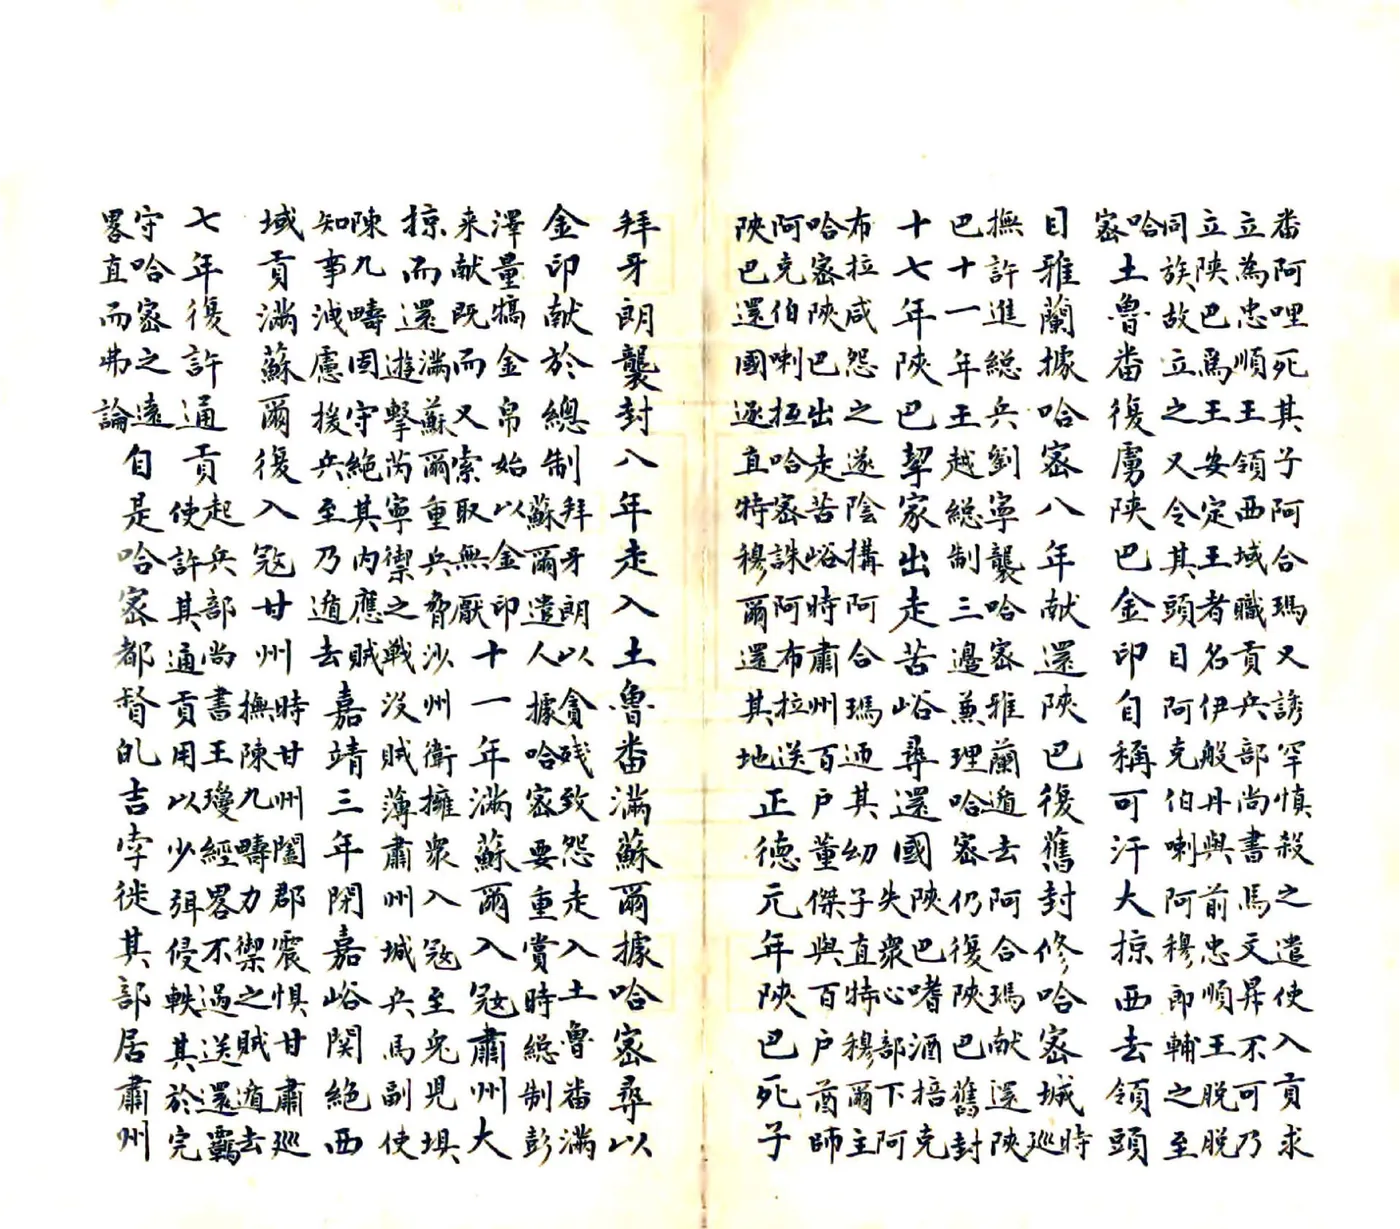 番阿哩死其子阿合瑪又誘罕慎殺之遣使入貢求
立為忠順王領西域職貢兵部尚書馬文昇不可乃
立陝巴為王安定王者名伊般丹與前忠順王脫脫
同族故立之又令其頭目阿克伯喇阿穆郎輔之至
哈
密
土魯番復虜陝巴金印自稱可汗大掠西去領頭
目雅蘭據哈密八年献還陝巴復舊封修哈密城
時
巡
撫許進総兵劉寧襲哈密雅蘭遁去阿合瑪献還陝
巴十一年王越総制三邊兼理哈密仍復陝巴舊封
十七年陝巴挈家出走苦峪尋還國
陝巴嗜酒掊克
失衆心部下阿
布拉咸怨之遂陰搆阿合瑪迊其幼子直特穆爾主
哈密陝巴出走苦峪時肅州百戶董傑與百戶酋師
阿克伯喇拒哈密誅阿布拉送
陝巴還國逐直特穆爾還其地
正德元年陝巴死子
拜牙朗襲封八年走入土魯番滿蘇爾據哈密尋以
金印献於總制
拜牙朗以貪殘致怨走入土魯番滿
蘇爾遣人據哈密要重賞時総制彭
澤量犒金帛始以金印
来献既而又索取無厭
十一年滿蘇爾入冦肅州大
掠而還
滿蘇爾重兵脅沙州衛擁衆入冦至兎児垻
遊擊芮寧禦之戰没賊薄肅州城兵馬副使
陳九疇固守絶其内應賊
知事洩慮援兵至乃遁去
嘉靖三年閉嘉峪関絶西
域貢滿蘇爾復入冦甘州
時甘州闔郡震惧甘肅巡
撫陳九疇力禦之賊遁去
七年復許通貢
起兵部尚書王瓊經畧不過送還羈
使許其通貢用以少弭侵軼其於完
守哈密之遠
畧直而弗論
自是哈密都督癿吉孛徙其部居肅州